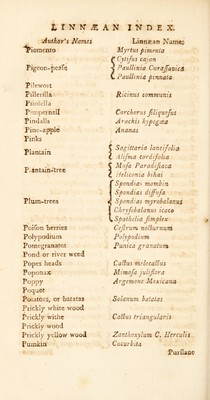 LINNÆAN INDEX.
Author's Names Linnæan Names
Piemento Myrtus pimenta
Cytisus cajan
Pigeon-pease Paullinia Curassavica
Paullinia pinnata
Pilewort
Pillerilla Ricinus communis
Pimpernell Corchorus siliquosus
Pindalls Arachis hypogæa
Pine-apple Ananas
Pinks
Plantain Sagittaria lancifolia
Alisma cordifolia
Plantain-tree Musa Paradisiaca
Heliconia bihai
Spondias mombin
Spondias diffusa
Plum-trees Spondias myrobalanus
Chrysobalanus icaco
Spathelia simplex
Poison berries Cestrum nocturnum
Polypodium Polypodium
Pomegranates Punica granatum
Pond or river weed
Popes heads Cactus melocactus
Poponax Mimosa juliflora
Poppy Argemone Mexicana
Poquet
Potatoes, or batatas Solanum batatas
Prickly white wood
Prickly withe Cactus triangularis
Prickly wood
Prickly yellow wood Zanthoxylum C. Herculis
Pumkin Cucurbita
Purslane